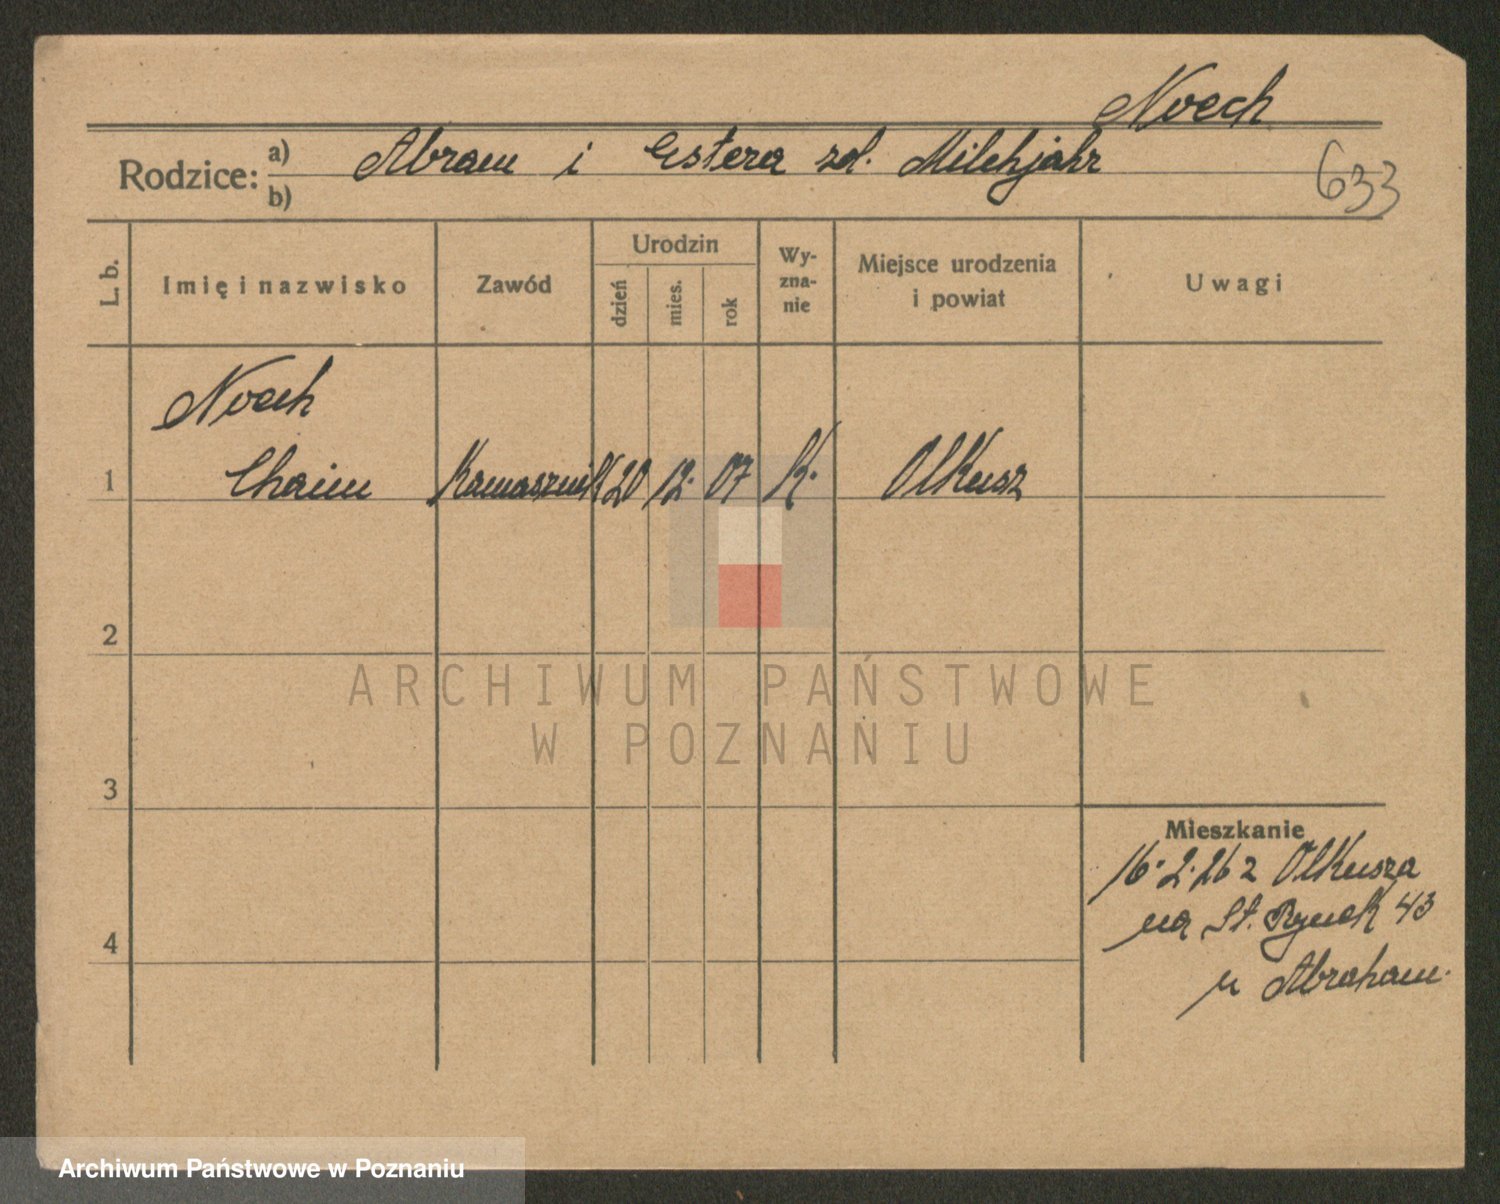 Noech
Rodzice: a) Abram i Estera zd. Milchjahr
b)
633
L. b.
Imię i nazwisko
Zawód
Urodzin
dzień
mies.
rok
Wy-
zna-
nie
Miejsce urodzenia
i powiat
Uwagi
Noech
1 Chaim Kamasznik 20 12. 07 K. Olkusz
2
ARCHIWUM PAŃSTWOWE
W POZNANIU
3
Mieszkanie
16.2.26 z Olkusza
na St. Rynek 43
4
u Abraham.
Archiwum Państwowe w Poznaniu